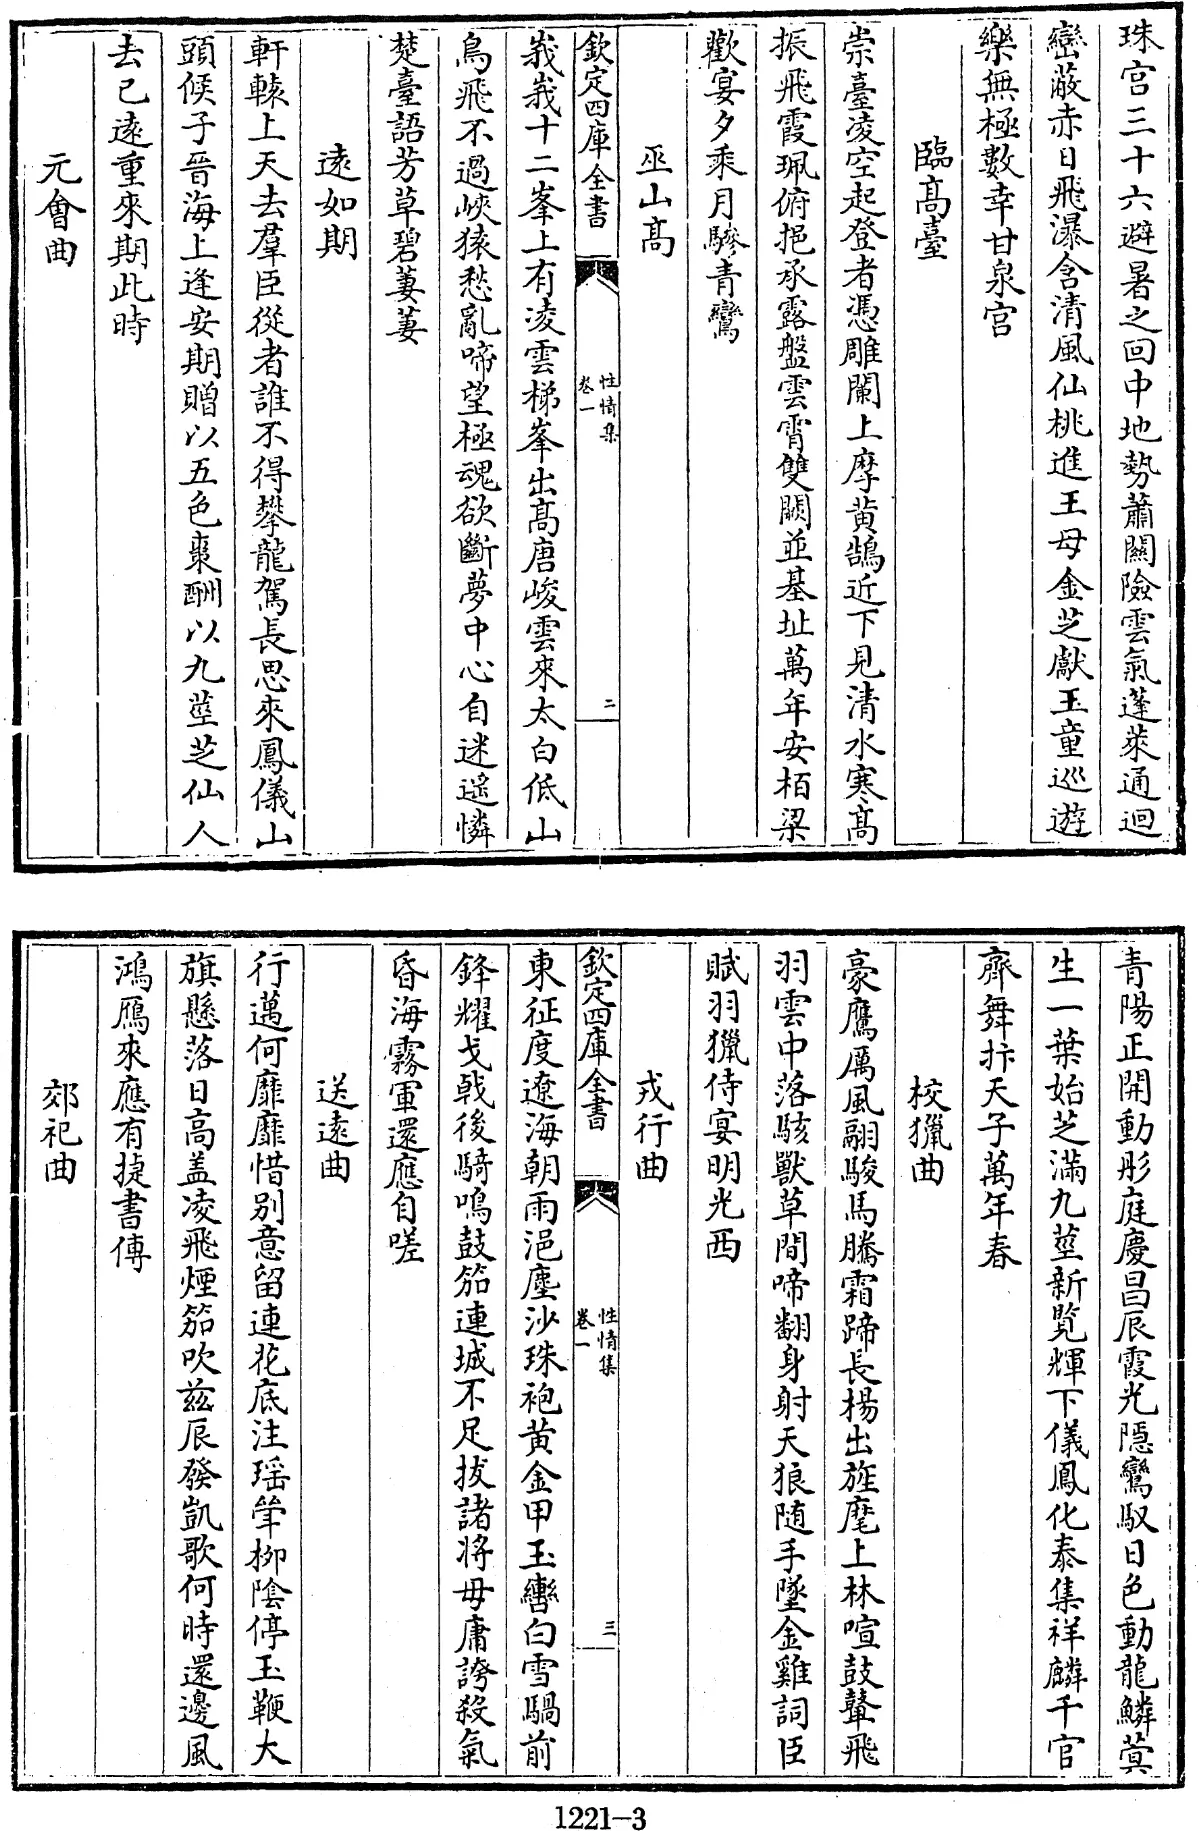 珠宫三十六避暑之回中地勢蕭關險雲氣蓬萊通迴
巒蔽赤日飛瀑含清風仙桃進王母金芝獻玉童巡遊
樂無極數幸甘泉宫
臨髙臺
崇臺凌空起登者憑雕闌上摩黄鵠近下見清水寒髙
振飛霞珮俯挹承露盤雲霄雙闕並基址萬年安栢梁
歡宴夕乘月驂青鸞
巫山髙
欽定四庫全書
性情集
卷一
二
峩峩十二峯上有凌雲梯峯出髙唐峻雲來太白低山
鳥飛不過峽猿愁亂啼望極魂欲斷夢中心自迷遥憐
楚臺語芳草碧萋萋
逺如期
軒轅上天去羣臣從者誰不得攀龍駕長思來鳳儀山
頭候子晉海上逢安期贈以五色棗酬以九莖芝仙人
去已逺重來期此時
元會曲
青陽正開動彤庭慶昌辰霞光隠鸞馭日色動龍鱗蓂
生一葉始芝滿九莖新覧輝下儀鳳化泰集祥麟千官
齊舞抃天子萬年春
校獵曲
豪鷹厲風翮駿馬騰霜蹄長楊出旌麾上林喧鼓鼙飛
羽雲中落駭獸草間啼翻身射天狼随手墜金雞詞臣
賦羽獵侍宴明光西
戎行曲
欽定四庫全書
性情集
卷一
三
東征度遼海朝雨浥塵沙珠袍黄金甲玉轡白雪騧前
鋒耀戈戟後騎鳴鼓笳連城不足拔諸将毋庸誇殺氣
昏海霧軍還應自嗟
送逺曲
行邁何靡靡惜别意留連花底注瑶觥柳陰停玉鞭大
旗懸落日高盖凌飛煙笳吹兹辰發凱歌何時還邊風
鴻鴈來應有捷書傳
郊祀曲
1221-3